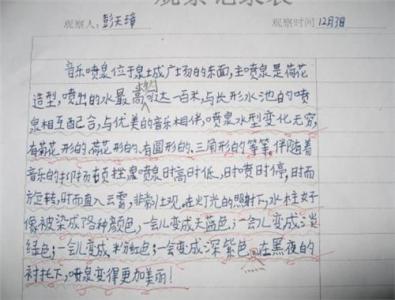 观察记录表
观察人：彭天璋 观察时间12月3日
音乐喷泉位于泉城广场的东面,主喷泉是荷花
造型,喷出的水最高可达一百米,与长形水池的喷
泉相互配合,与优美的音乐相伴,喷泉水型变化无穷,
有菊花形的、荷花形的、有圆形的、三角形的等等。伴随着
音乐的抑扬顿挫,喷泉时高时低、时喷时停,时而
旋转,时而直入云霄,非常壮观。在灯光的照射下,水柱好
像被染成了各种颜色,一会儿变成天蓝色;一会儿变成淡
绿色;一会儿变成粉红色;一会变成深紫色。在黑夜的
衬托下,喷泉变得更加美丽!